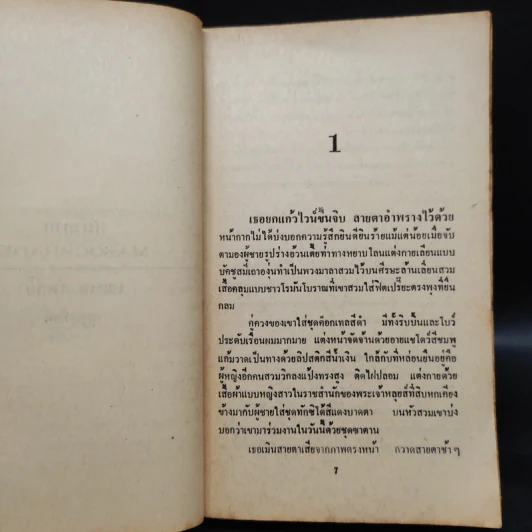 1
เธอยกแก้วไวน์ขึ้นจิบ สายตาอำพรางไว้ด้วย
หน้ากากไม่ได้บ่งบอกความรู้สึกยินดียินร้ายแม้แต่น้อยเมื่อจับ
ตามองผู้ชายรูปร่างอ้วนเตี้ยที่ท่าทางหยาบโลนแต่งกายเลียนแบบ
บัคชูสมีเถาองุ่นทำเป็นพวงมาลาสวมไว้บนศีรษะล้านเลี่ยนสวม
เสื้อคลุมแบบชาวโรมันโบราณที่เขาสวมใส่ฟิตเปรี๊ยะตรงพุงที่ยื่น
กลม
คู่ควงของเขาใส่ชุดค็อกเทลสีดำ มีทั้งริบบิ้นและโบว์
ประดับเรือนผมมากมาย แต่งหน้าจัดจ้านด้วยอายแชโดว์สีชมพู
แก้มวาดเป็นทางด้วยลิปสติกสีน้ำเงิน ใกล้กับที่หล่อนยืนอยู่คือ
ผู้หญิงอีกคนสวมวิกลงแป้งทรงสูง ติดไฝปลอม แต่งกายด้วย
เสื้อผ้าแบบหญิงสาวในราชสำนักของพระเจ้าหลุยส์ที่สิบหกเคียง
ข้างมากับผู้ชายใส่ชุดทักซิโด้สีแดงบาดตา บนหัวสวมเขาบ่ง
บอกว่าเขามาร่วมงานในวันนี้ด้วยชุดซาตาน
เธอเมินสายตาเสียจากภาพตรงหน้า กวาดสายตาช้าๆ
7